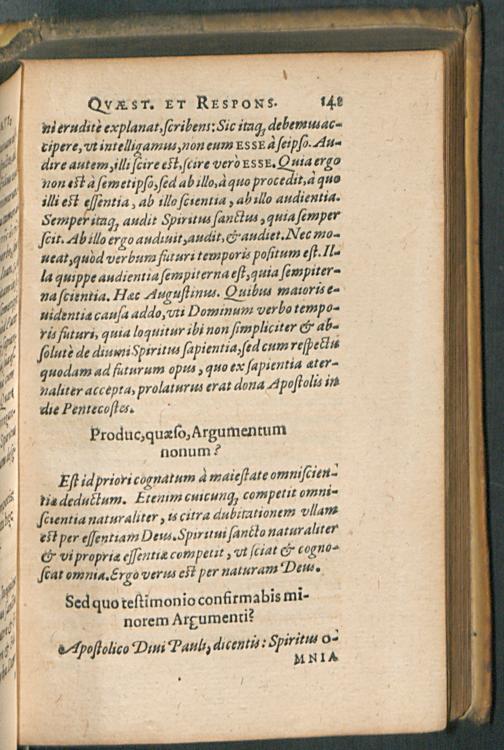 QVÆST. ET RESPONS. 148
ni eruditè explanat, scribens: Sic itaq; debemus ac-
cipere, vt intelligamus, non eum ESSE à seipso. Au-
dire autem, illi scire est, scire verò ESSE. Quia ergo
non est à semetipso, sed ab illo, à quo procedit, à quo
illi est essentia, ab illo scientia, ab illo audientia.
Semper itaq; audit Spiritus sanctus, quia semper
scit. Ab illo ergo audiuit, audit, & audiet. Nec mo-
ueat, quòd verbum futuri temporis positum est. Il-
la quippe audientia sempiterna est, quia sempiter-
na scientia. Hæc Augustinus. Quibus maioris e-
uidentiæ causa addo, vti Dominum verbo tempo-
ris futuri, quia loquitur ibi non simpliciter & ab-
solutè de diuini Spiritus sapientia, sed cum respectu
quodam ad futurum opus, quo ex sapientia æter-
naliter accepta, prolaturus erat dona Apostolis in
die Pentecostes.
Produc, quæso, Argumentum
nonum?
Est id priori cognatum à maiestate omniscien-
tiæ deductum. Etenim cuicunq; competit omni-
scientia naturaliter, is citra dubitationem vllam
est per essentiam Deus. Spiritui sancto naturaliter
& vi propriæ essentiæ competit, vt sciat & cogno-
scat omnia. Ergo verus est per naturam Deus.
Sed quo testimonio confirmabis mi-
norem Argumenti?
Apostolico Diui Pauli, dicentis: Spiritus O-
MNIA